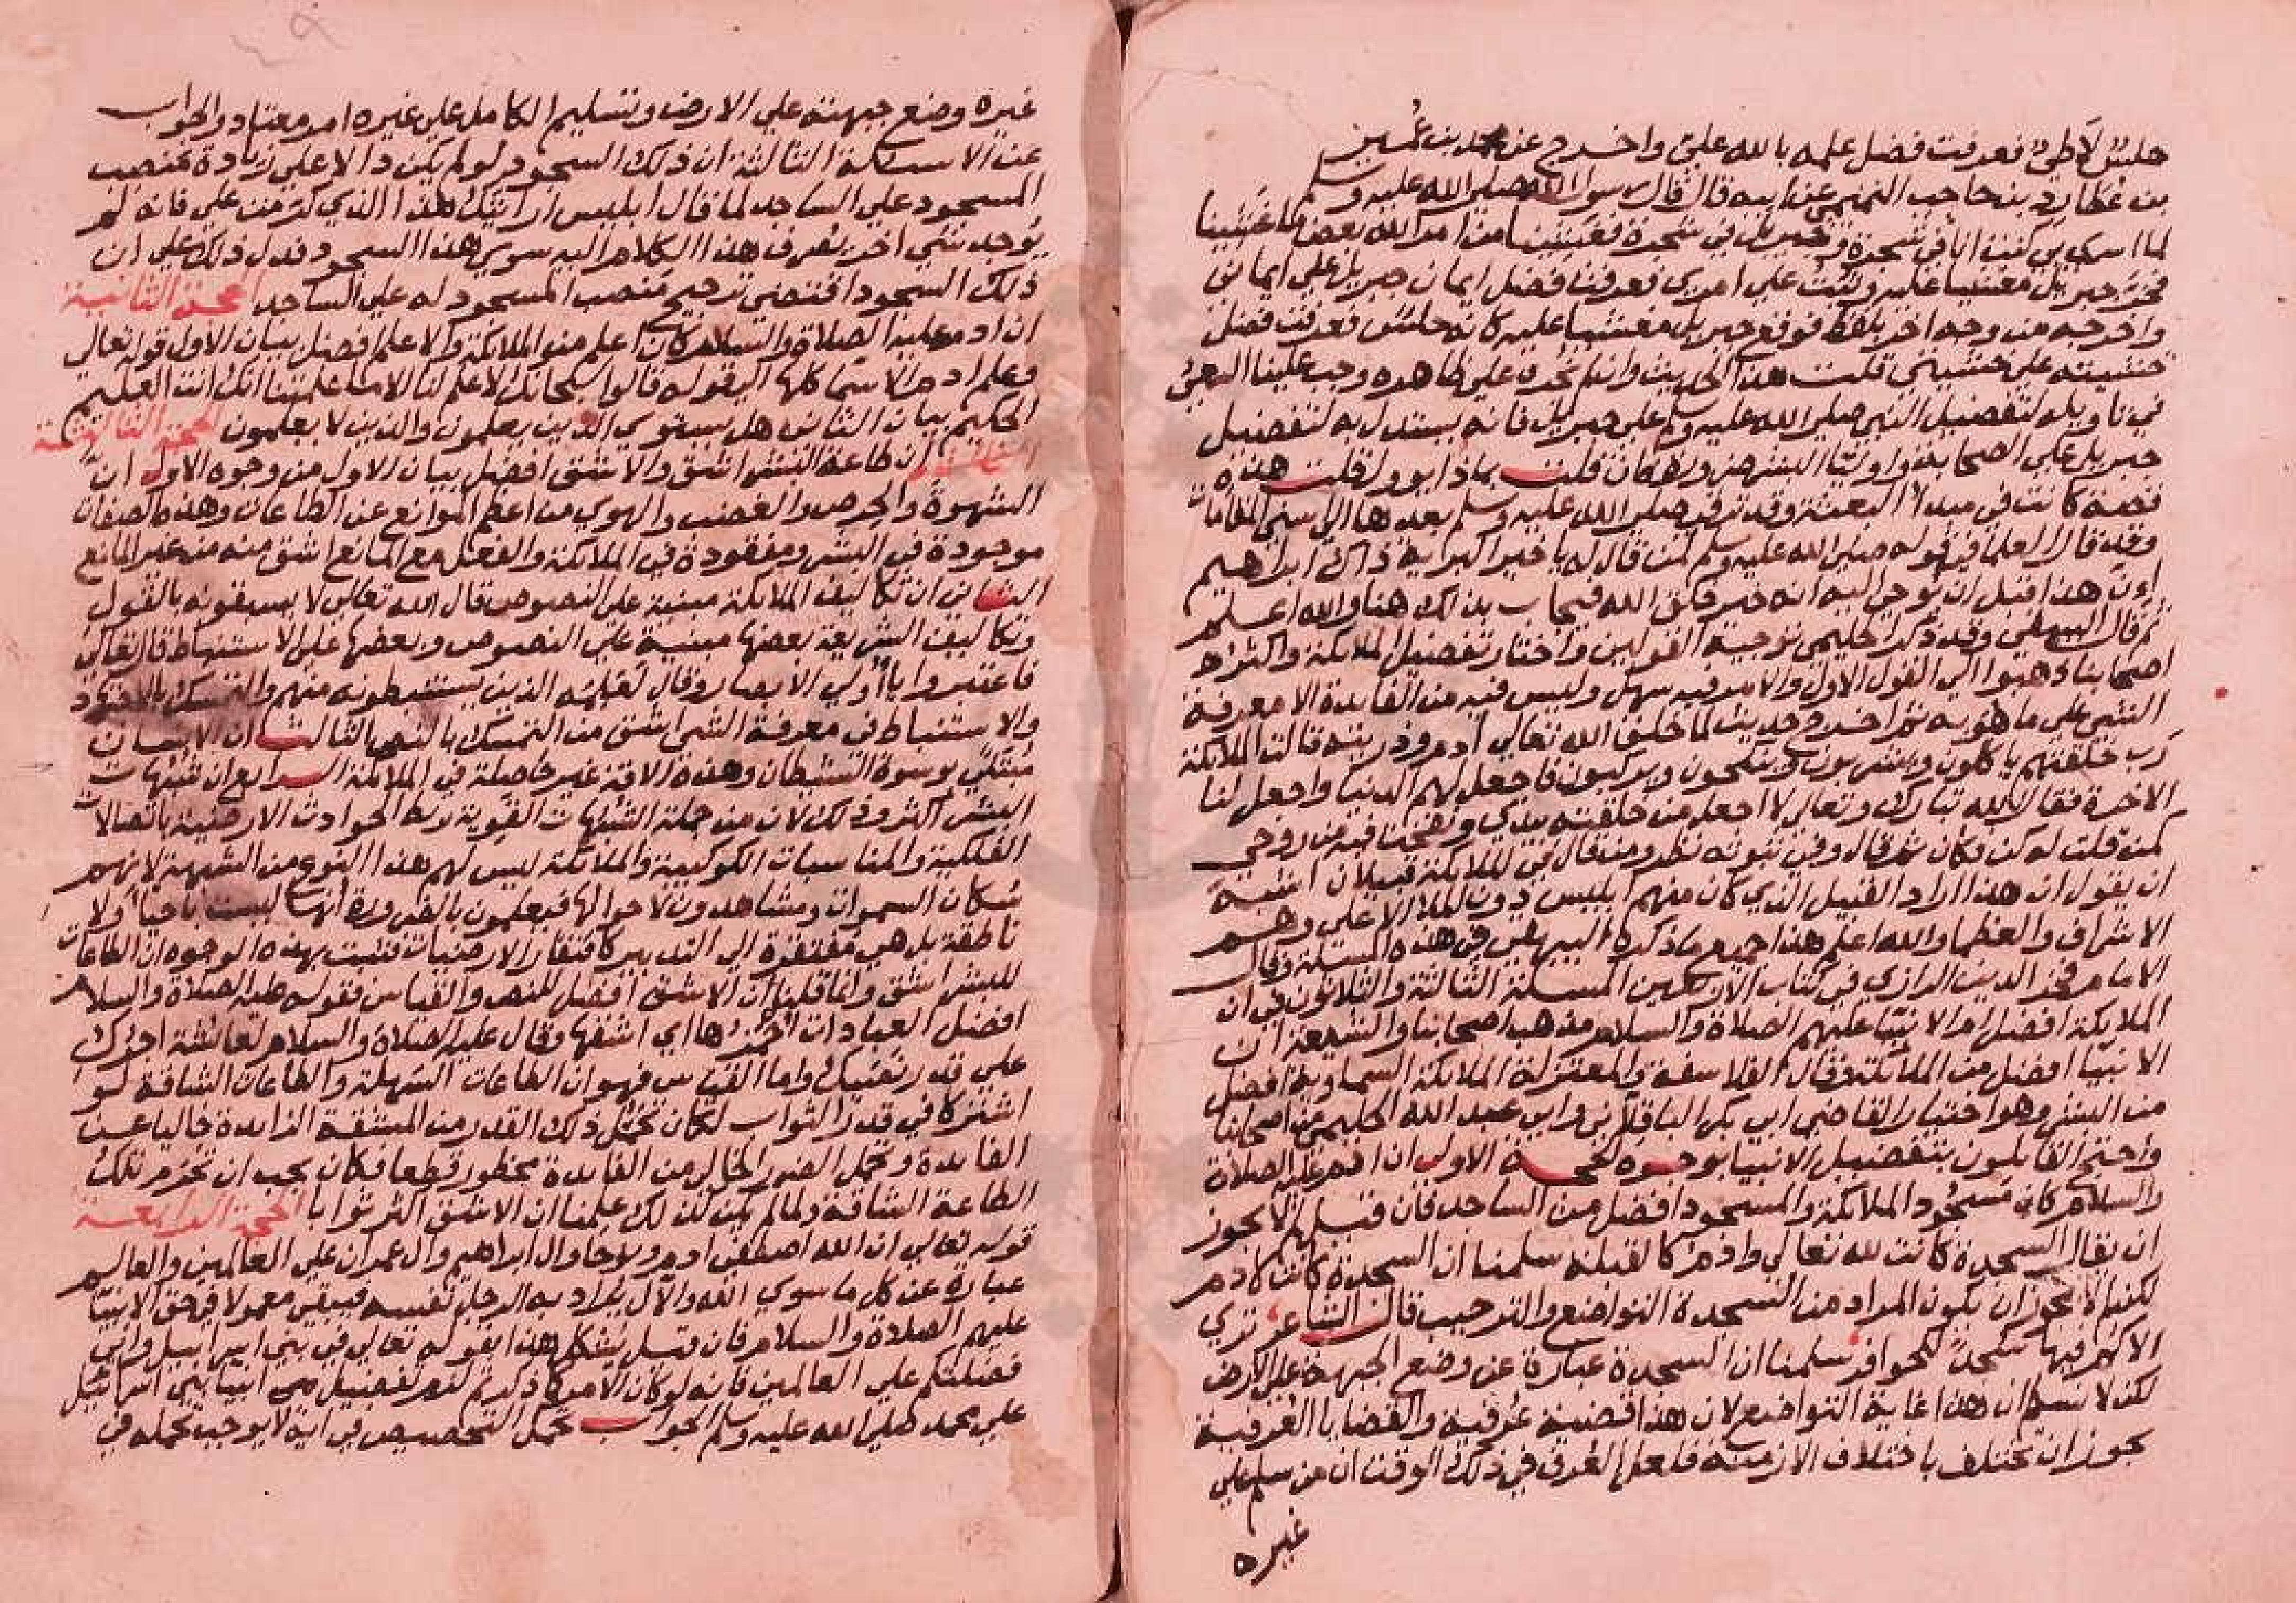 حلس لاطئ فعرفت فضل علمه بالله علي واخرج عن محمد بن عمير
بن عطارد بن حاجب التميمي عن ابيه قال قال رسول الله صلى الله عليه وسلم
لما اسري بي كنت انا في شجرة وجبريل في شجرة فغشينا من امر الله بعض ما غشينا
فخر جبريل مغشيا عليه وثبت على امري فعرفت فضل ايمان جبريل على ايماني
واخرجه من وجه اخر بلفظ فوقع جبريل مغشيا عليه كانه حلس فعرفت فضل
خشيته على خشيتي قلت هذا الحديث وانلم نجره على ظاهره وجب علينا السعي
في تاويله لتفضيل النبي صلى الله عليه وسلم على جبريل فانه يستدل به لتفضيل
جبريل على الصحابة واوليا البشر من وهكان قلت بماذا يوول قلت هذه
قصة كانت في مبدا البعثة وقد ترقى صلى الله عليه وسلم بعدها الى سني المقامات
وقد قال العلما في قوله صلى الله عليه وسلم لمن قال له يا خير البرية ذاك ابراهيم
ان هذا قبل ان يوحى اليه انه خير خلق الله فيجاب بذلك هنا والله اعلم
ثم قال البيهقي وقد ذكر الحليمي توجيه القولين واختار تفضيل الملائكة واكثر
اصحابنا ذهبوا الى القول الاول والامر فيه سهل وليس فيه من الفايدة الا معرفة
الشي على ما هو به ثم اخرج حديث لما خلق الله تعالى ادم وذريته قالت الملائكة
رب خلقتهم ياكلون ويشربون وينكحون ويركبون فاجعل لهم الدنيا واجعل لنا
الاخرة فقال الله تبارك وتعالى لا اجعل من خلقته بيدي ونفخت فيه من روحي
كمن قلت له كن فكان ثم قال وفي ثبوته نظر ومن قال في الملائكة قبيلان اشبه
ان يقول ان هذا اراد القبيل الذي كان منهم ابليس دون الملا الاعلى وهم
الاشراف والعظما والله اعلم هذا جميع ما ذكره البيهقي في هذه المسئلة وقال
الامام فخر الدين الرازي في كتاب الاربعين المسئلة الثالثة والثلاثون في ان
الملايكة افضل ام الانبيا عليهم الصلاة والسلام مذهب اصحابنا والشيعة ان
الانبيا افضل من الملائكة وقال الفلاسفة والمعتزلة الملائكة السماوية افضل
من البشر وهو اختيار القاضي ابي بكر الباقلاني وابي عبد الله الحليمي من اصحابنا
واحتج القايلون بتفضيل الانبيا بوجوه الحجة الاولى ان ادم عليه الصلاة
والسلام كان مسجود الملائكة والمسجود افضل من الساجد فان قيل لم لا يجوز
ان يقال السجدة كانت لله تعالى وادم كالقبلة سلمنا ان السجدة كانت لادم
لكن لم لا يجوز ان يكون المراد من السجدة التواضع والترحيب قال الشاعر ترى
الاكم فيها سجدا للحوافر سلمنا ان السجدة عبارة عن وضع الجبهة على الارض
لكن لا نسلم ان هذا غاية التواضع لان هذا قضية عرفية والقضايا العرفية
يجوز ان تختلف باختلاف الازمنة فلعل العرف في ذلك الوقت ان من سلم على
غيره
غيره وضع جبهته على الارض وتسليم الكامل على غيره امر معتاد والجواب
عن الاسئلة الثالثة ان ذلك السجود لو لم يكن دالا على زيادة منصب
المسجود على الساجد لما قال ابليس ارايتك هذا الذي كرمت علي فانه لم
يوجد شي اخر يصرف هذا الكلام اليه سوى هذا السجود فدل ذلك على ان
ذلك السجود اقتضى ترجيح منصب المسجود له على الساجد الحجة الثانية
ان ادم عليه الصلاة والسلام كان اعلم من الملائكة والاعلم افضل بيان الاول قوله تعالى
وعلم ادم الاسما كلها الى قوله قالوا سبحانك لا علم لنا الا ما علمتنا انك انت العليم
الحكيم بيان الثاني هل يستوي الذين يعلمون والذين لا يعلمون الحجة الثالثة
ان طاعة البشر اشق والاشق افضل بيان الاول من وجوه الاول ان
الشهوة والحرص والغضب والهوى من اعظم الموانع عن الطاعات وهذه الصفات
موجودة في البشر ومفقودة في الملائكة والفعل مع المانع اشق منه من غير المانع
الثاني ان تكاليف الملائكة مبنية على النصوص قال الله تعالى لا يسبقونه بالقول
وتكاليف الشريعة بعضها مبنية على النصوص وبعضها على الاستنباط قال تعالى
فاعتبروا يا اولي الابصار وقال لعلمه الذين يستنبطونه منهم والتمسك بالاجتهاد
والاستنباط في معرفة الشي اشق من التمسك بالنص الثالث ان الانسان
مبتلى بوسوسة الشيطان وهذه الافة غير حاصلة في الملائكة الرابع ان شبهات
البشر اكثر وذلك لان من جملة الشبهات القوية ربط الحوادث الارضية باتصالات
الفلكية والمناسبات الكوكبية والملائكة ليس لهم هذا النوع من الشبهة لانهم
سكان السموات ومشاهدون لاحوالها فيعلمون بالضرورة انها ليست باحيا ولا
ناطقة بل هي مفتقرة الى التدبير كافتقار الارضيات فثبت بهذه الوجوه ان الطاعات
للبشر اشق وانما قلنا ان الاشق افضل للنص والقياس فقوله عليه الصلاة والسلام
افضل العبادات احمزها اي اشقها وقال عليه الصلاة والسلام لعائشة اجرك
على قدر نصبك واما القياس فهو ان الطاعات السهلة والطاعات الشاقة لو
اشتركا في قدر الثواب لكان تحمل ذلك القدر من المشقة الزايدة خاليا عن
الفايدة وتحمل الضرر الخالي من الفايدة محظور قطعا فكان يجب ان تحرم تلك
الطاعة الشاقة ولما لم يكن كذلك علمنا ان الاشق اكثر ثوابا الحجة الرابعة
قوله تعالى ان الله اصطفى ادم ونوحا وال ابراهيم وال عمران على العالمين والعالم
عبارة عن كل ما سوى الله والآل يراد به الرجل نفسه فيبقى معمولا في حق الانبيا
عليهم الصلاة والسلام فان قيل يشكل هذا بقوله تعالى في بني اسرائيل واني
فضلتكم على العالمين فانه لو كان الامر كما ذكرتم لزم تفضيل انبيا بني اسرائيل
على محمد صلى الله عليه وسلم الجواب تحمل التخصيص في اية لا يوجب تحمله في